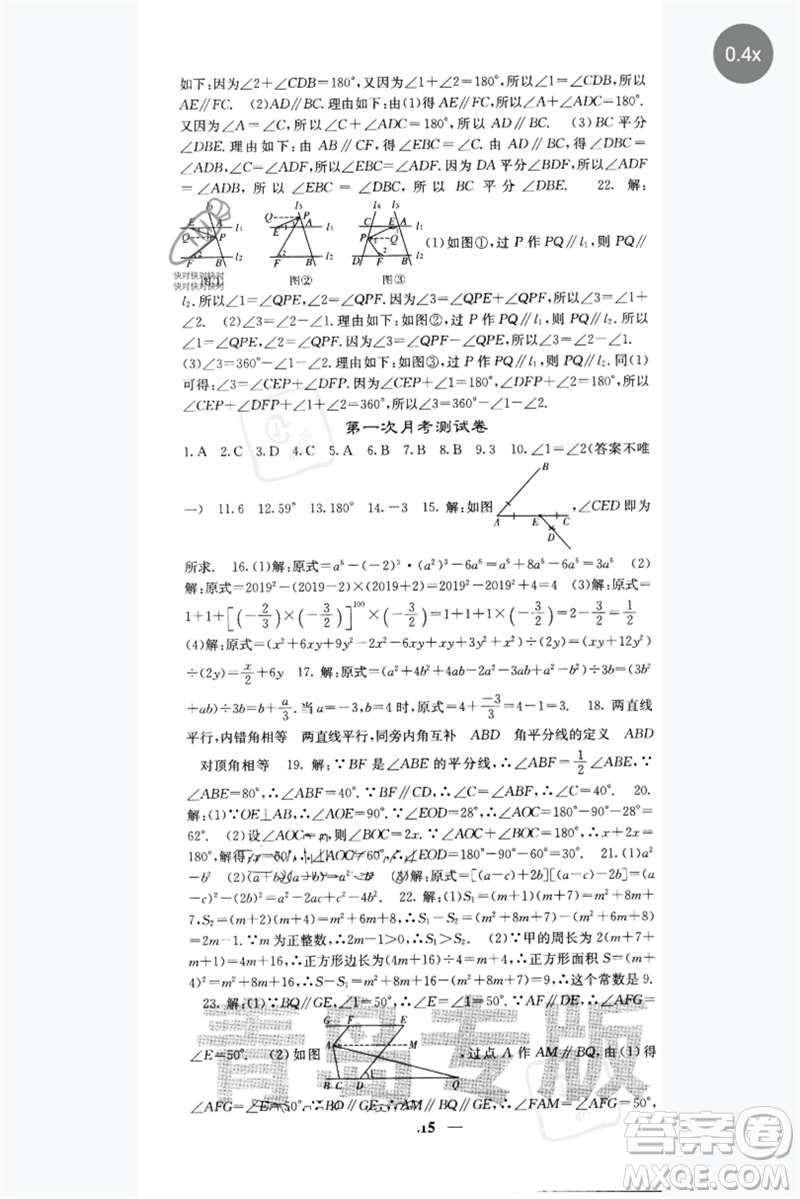 0.4x
如下:因为∠2+∠CDB=180°,又因为∠1+∠2=180°,所以∠1=∠CDB,所以
AE∥FC. (2)AD∥BC. 理由如下:由(1)得 AE∥FC,所以∠A+∠ADC=180°.
又因为∠A=∠C,所以∠C+∠ADC=180°,所以 AD∥BC. (3)BC 平分
∠DBE. 理由如下:由 AB∥CF,得∠EBC=∠C. 由 AD∥BC,得∠DBC=
∠ADB,∠C=∠ADF,所以∠EBC=∠ADF. 因为 DA 平分∠BDF,所以∠ADF
=∠ADB, 所 以 ∠EBC = ∠DBC, 所 以 BC 平 分 ∠DBE. 22. 解:
l3 E A l1 Q P l2 F B
l3 Q P E A l1 F B l2
l4 l3 C A l1 P Q D F B l2
(1)如图①,过 P 作 PQ∥l1,则 PQ∥
图① 图② 图③
快对快对快对
快对快对快对
l2.所以∠1=∠QPE,∠2=∠QPF.因为∠3=∠QPE+∠QPF,所以∠3=∠1+
∠2. (2)∠3=∠2-∠1.理由如下:如图②,过 P 作 PQ∥l1,则 PQ∥l2.所以
∠1=∠QPE,∠2=∠QPF.因为∠3=∠QPF-∠QPE,所以∠3=∠2-∠1.
(3)∠3=360°-∠1-∠2.理由如下:如图③,过 P 作 PQ∥l1,则 PQ∥l2.同(1)
可得:∠3=∠CEP+∠DFP.因为∠CEP+∠1=180°,∠DFP+∠2=180°,所以
∠CEP+∠DFP+∠1+∠2=360°,所以∠3=360°-∠1-∠2.
第一次月考测试卷
1.A 2.C 3.D 4.C 5.A 6.B 7.B 8.B 9.3 10.∠1=∠2(答案不唯
一) 11.6 12.59° 13.180° 14.-3 15.解:如图
B A E C D
,∠CED 即为
所求. 16.(1)解:原式=a⁶-(-2)³·(a²)³-6a⁶=a⁶+8a⁶-6a⁶=3a⁶ (2)
解:原式=2019²-(2019-2)×(2019+2)=2019²-2019²+4=4 (3)解:原式=
1+1+[(-2/3)×(-3/2)]¹⁰⁰×(-3/2)=1+1+1×(-3/2)=2-3/2=1/2
(4)解:原式=(x²+6xy+9y²-2x²-6xy+2x²+6xy)÷(2y)=(x²+6xy+9y²
)÷(2y)=x/2+6y 17. 解:原式=(a²+4b²+4ab-2ab-a²-b²-ab)÷3b=(3b²
+ab)÷3b=b+a/3. 当 a=-3,b=4 时,原式=4+-3/3=4-1=3. 18. 两直线
平行,内错角相等 两直线平行,同旁内角互补 ABD 角平分线的定义 ABD
对顶角相等 19. 解:∵BF 是∠ABE 的平分线,∴∠ABF=1/2∠ABE,∵
∠ABE=80°,∴∠ABF=40°. ∵BF∥CD,∴∠C=∠ABF,∴∠C=40°. 20.
解:(1)∵OE⊥AB,∴∠AOE=90°.∵∠EOD=28°,∴∠AOC=180°-90°-28°=
62°. (2)设∠AOC=x,则∠BOC=2x.∵∠AOC+∠BOC=180°,∴x+2x=
180°,解得x=60°,∴∠AOC=60°,∴∠EOD=180°-90°-60°=30°. 21.(1)a²
-b² (2)(a+b)(a-b)=a²-b² (3)解:原式=[(a-c)+2b][(a-c)-2b]=
(a-c)²-(2b)²=a²-2ac+c²-4b². 22. 解:(1)S1=(m+1)(m+7)=m²+8m+
7,S2=(m+2)(m+4)=m²+6m+8,∴S1-S2=(m²+8m+7)-(m²+6m+8)=
2m-1.∵m为正整数,∴2m-1>0,∴S1>S2. (2)∵甲的周长为 2(m+7+
m+1)=4m+16,∴正方形边长为(4m+16)÷4=m+4,∴正方形面积 S=(m+4)²
=m²+8m+16,∴S-S1=m²+8m+16-(m²+8m+7)=9,∴这个常数是 9.
23. 解:(1)∵BQ∥GE,∠1=50°,∴∠E=∠1=50°,∵AF∥DE,∴∠AFG=
∠E=50°. (2)如图
G F E A M B C D Q
,过点 A 作 AM∥BQ,由(1)得
∠AFG=∠E=50°,∵BQ∥GE,∴AM∥BQ∥GE,∴∠FAM=∠AFG=50°,
青岛专版
15
答案卷
MXQE.COM